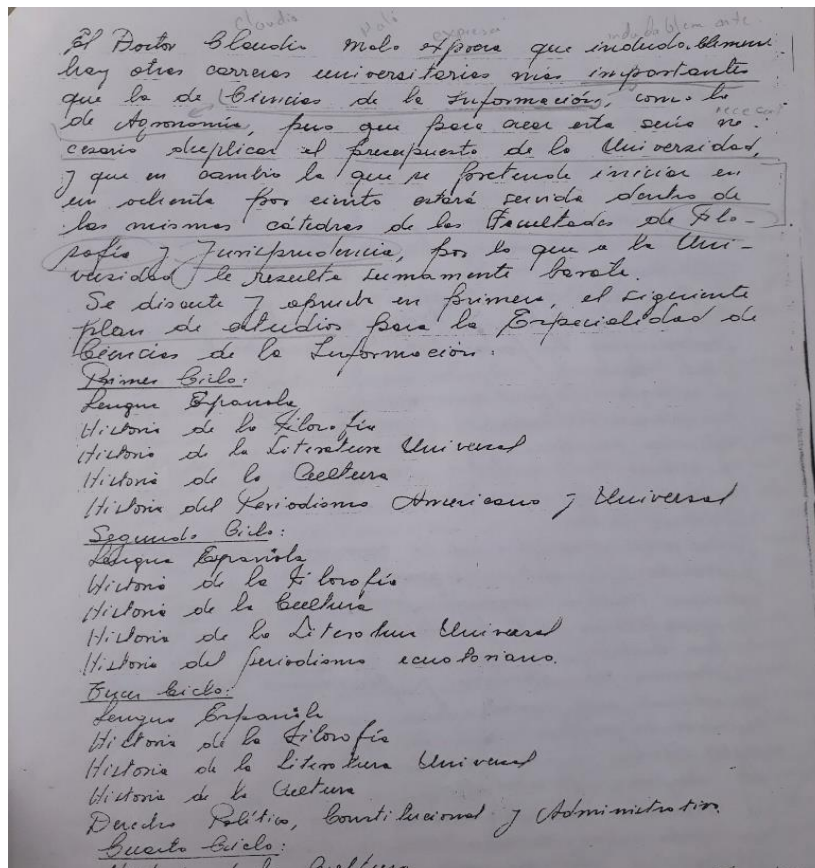 Claudio Malo expresa indudablemente
El Doctor Claudio Malo expresa que indudablemente
hay otras carreras universitarias mas importantes
que la de Ciencias de la Información, como la
de Agronomía, pero que para crear esta seria ne-
cesario duplicar el presupuesto de la Universidad,
y que en cambio la que se pretende iniciar en
un ochenta por ciento estará servida dentro de
las mismas cátedras de las Facultades de Filo-
sofía y Jurisprudencia, por lo que a la Uni-
versidad le resulta sumamente barata.
Se discute y aprueba en primera, el siguiente
plan de estudios para la Especialidad de
Ciencias de la Información:
Primer Ciclo:
Lengua Española
Historia de la Filosofía
Historia de la Literatura Universal
Historia de la Cultura
Historia del Periodismo Americano y Universal
Segundo Ciclo:
Lengua Española
Historia de la Filosofía
Historia de la Cultura
Historia de la Literatura Universal
Historia del periodismo ecuatoriano.
Tercer Ciclo:
Lengua Española
Historia de la Filosofía
Historia de la Literatura Universal
Historia de la Cultura
Derecho Político, Constitucional y Administrativo.
Cuarto Ciclo: